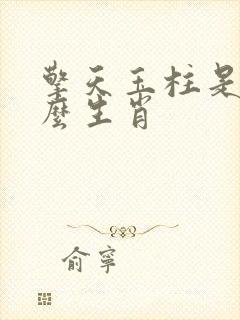 擎天玉柱是
麼生肖
俞寧